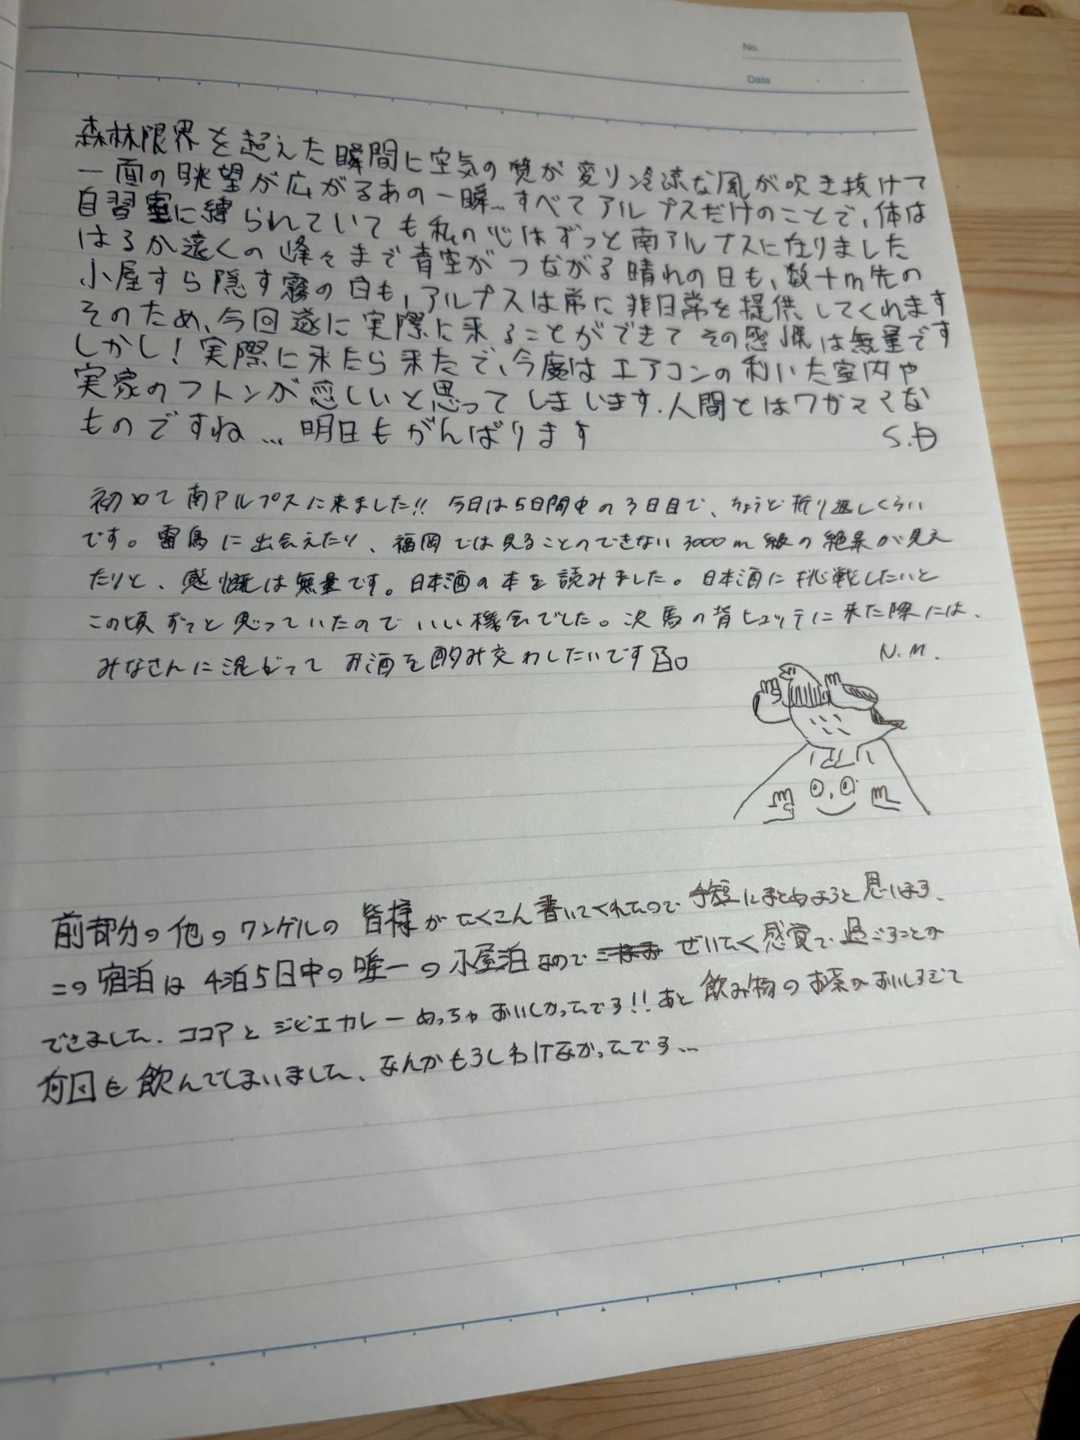 No.
Date
森林限界を超えた瞬間に空気の質が変り冷涼な風が吹き抜けて
一面の眺望が広がるあの一瞬…すべてアルプスだけのことで、体は
自習室に縛られていても私の心はずっと南アルプスに在りました
はるか遠くの峰々まで青空がつながる晴れの日も、数十m先の
小屋すら隠す霧の白も、アルプスは常に非日常を提供してくれます
そのため、今回遂に実際に来ることができてその感慨は無量です
しかし！実際に来たら来たで、今度はエアコンの利いた室内や
実家のフトンが恋しいと思ってしまいます．人間とはワガママな
ものですね…明日もがんばります
初めて南アルプスに来ました!! 今日は5日間中の3日目で、ちょうど折り返しくらい
です。雷鳥に出会えたり、福岡では見ることのできない3000m級の絶景が見え
たりと、感慨は無量です。日本酒の本を読みました。日本酒に挑戦したいと
この頃ずっと思っていたのでいい機会でした。次馬の背ヒュッテに来た際には、
みなさんに混ざってお酒を酌み交わしたいです
N.M.
前部分の他のワンゲルの皆様がたくさん書いてくれたので手短にまとめようと思います、
この宿泊は4泊5日中の唯一の小屋泊なので ぜいたく感覚で過ごすことが
できました．ココアとジビエカレーめっちゃおいしかったです!! あと飲み物のお茶がおいしすぎて
何回も飲んでしまいました、なんかもうしわけなかったです…